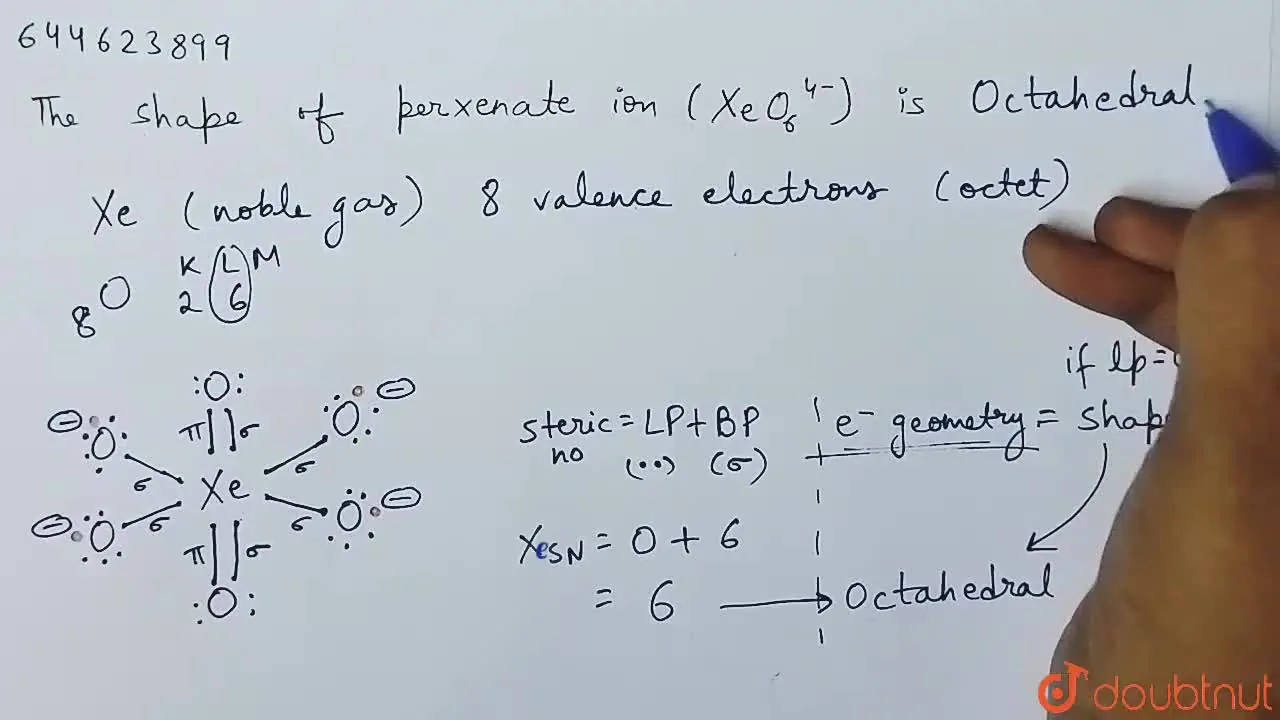 644623899
The shape of perxenate ion (XeO₆⁴⁻) is Octahedral
Xe (noble gas) 8 valence electrons (octet)
K L M
₈O 2 6
if lp=
:O:
π σ
O ⊖
⊖ O
σ
σ
Xe
σ
σ
⊖ O
O ⊖
π σ
:O:
steric = LP + BP
no (••) (σ)
e⁻ geometry = Shap
XeSN = 0 + 6
= 6 → Octahedral
doubtnut